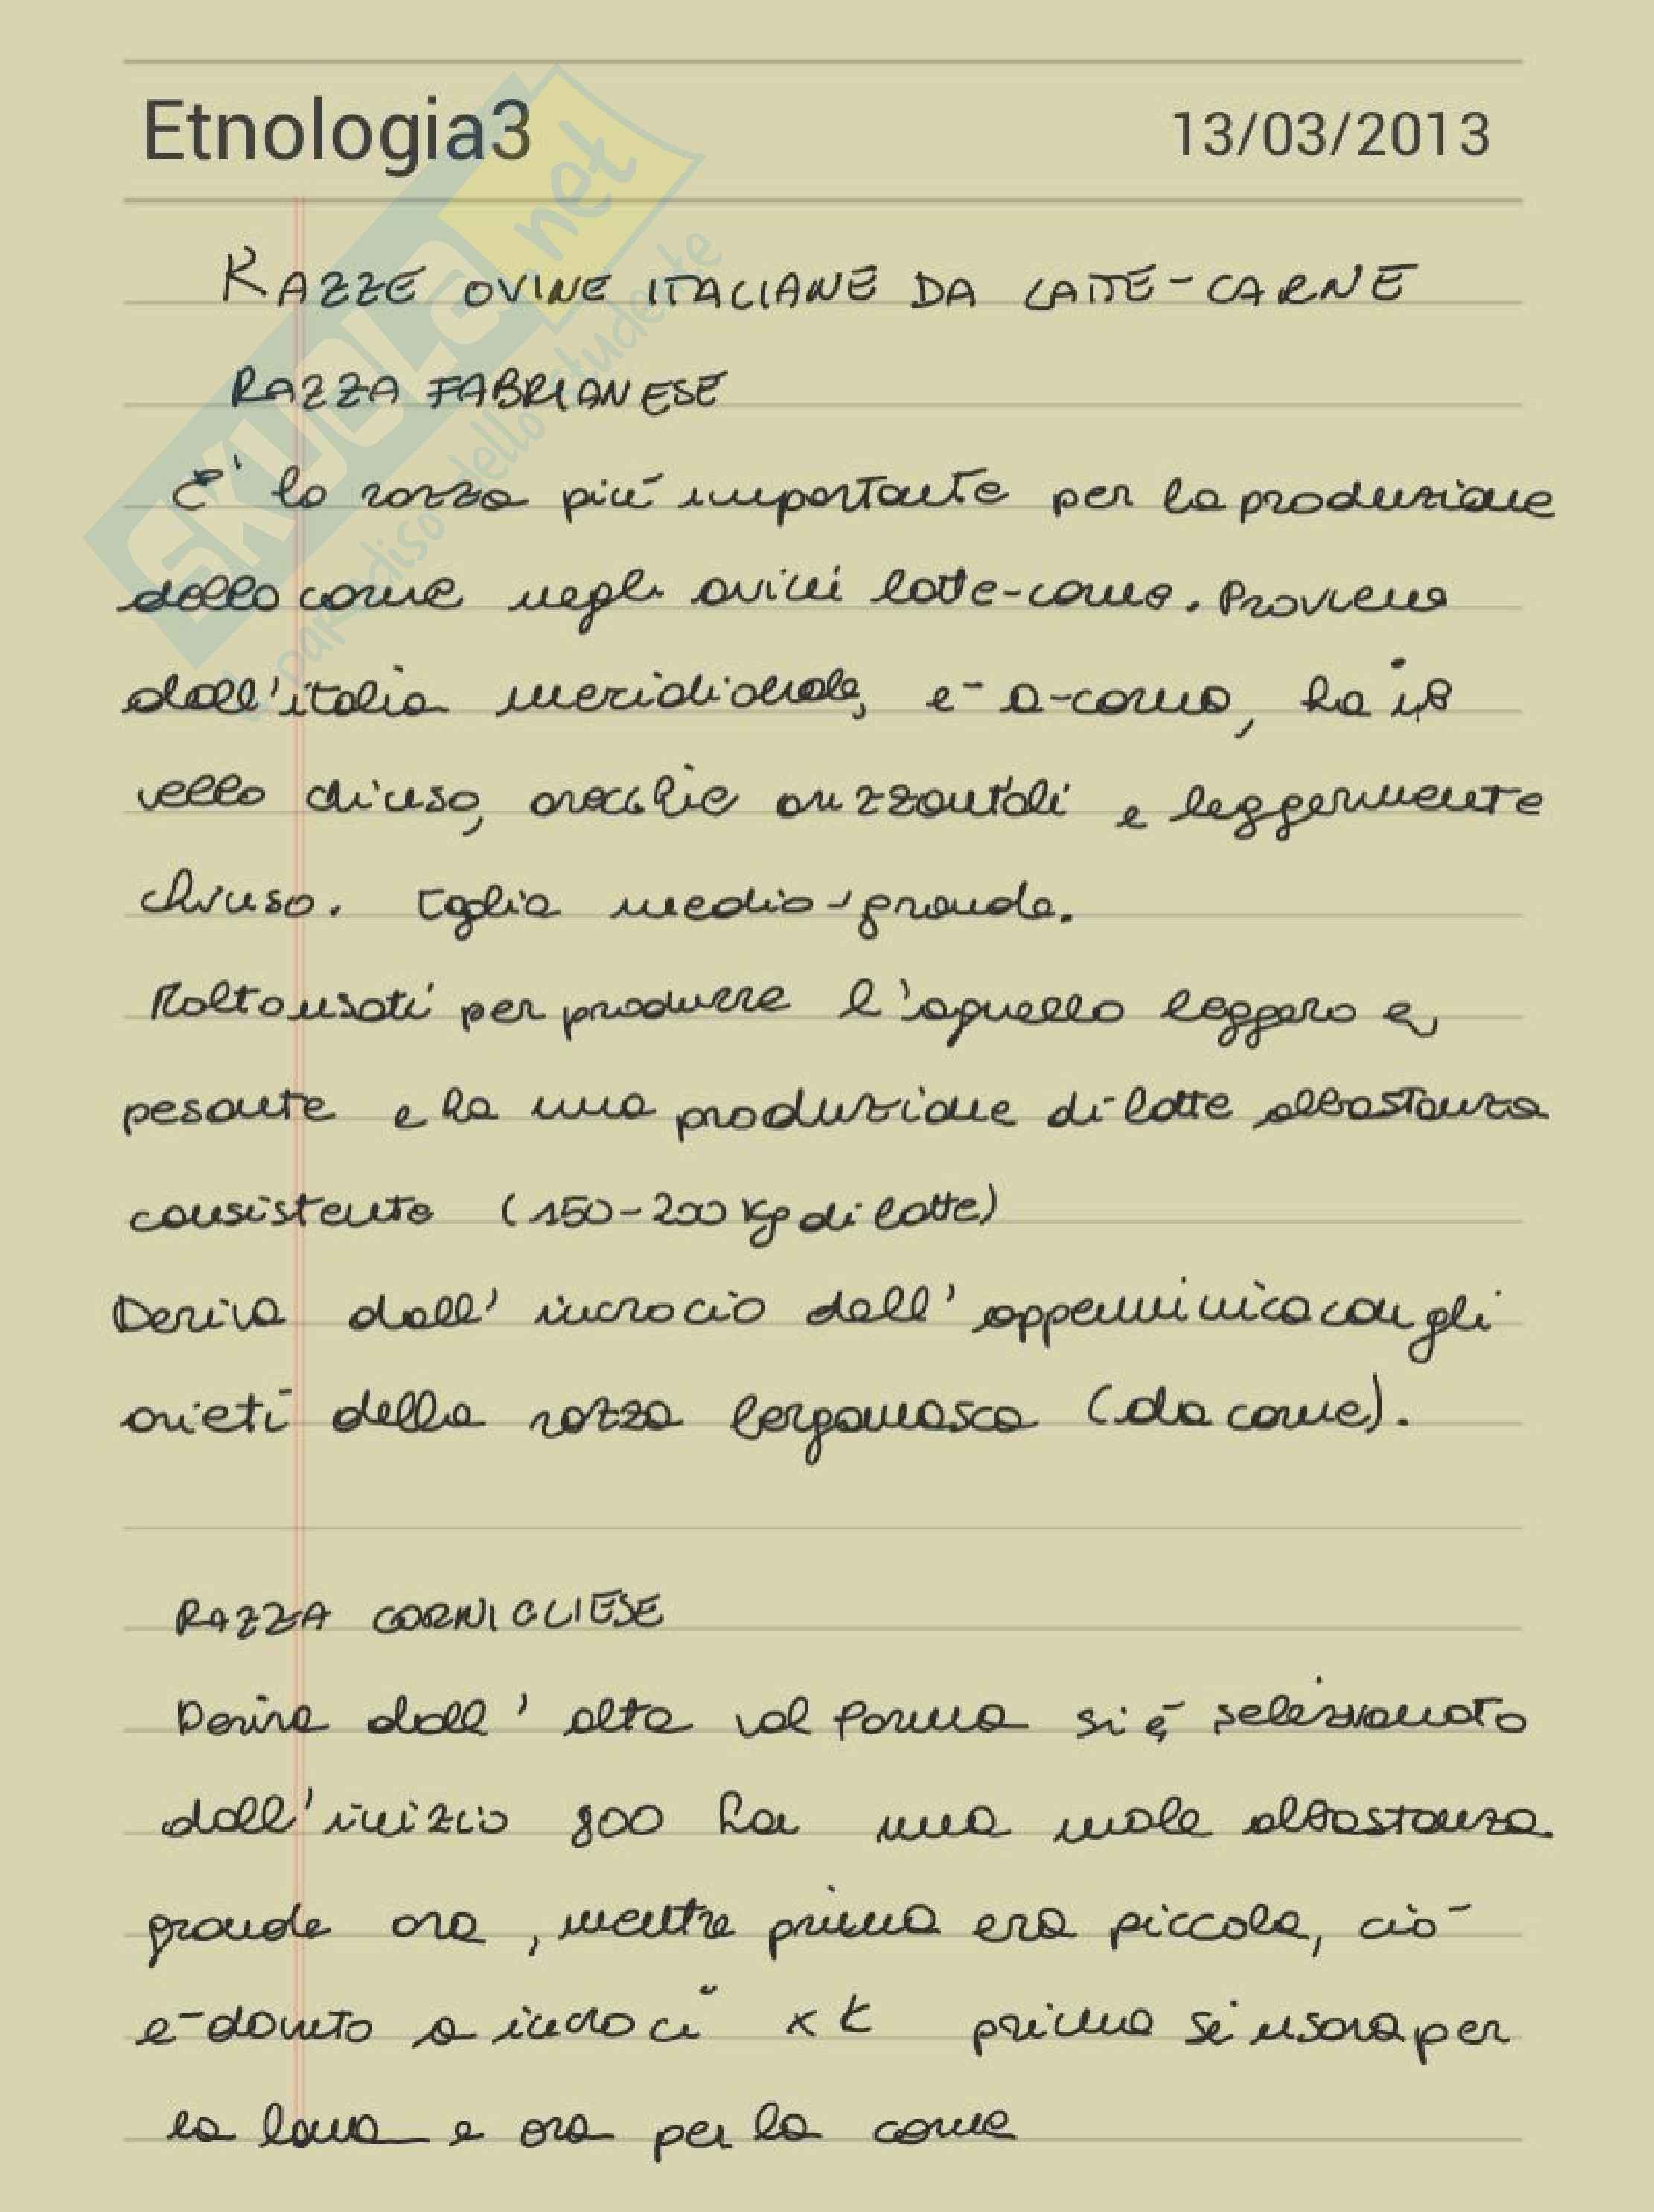 Etnologia3
13/03/2013
SKUOLA.net
il paradiso dello studente
RAZZE OVINE ITALIANE DA LATTE-CARNE
RAZZA FABRIANESE
E' la razza più importante per la produzione
della carne negli ovini latte-carne. Proviene
dall'italia meridionale, è a-corno, ha il
vello chiuso, orecchie orizzontali e leggermente
chiuso. Taglia medio-grande.
Molto usati per produrre l'agnello leggero e
pesante e ha una produzione di latte abbastanza
consistente (150-200 Kg di latte)
Deriva dall'incrocio dell'appenninica con gli
arieti della razza bergamasca (da carne).
RAZZA CORNIGLIESE
Deriva dall'alta val Parma si è selezionato
dall'inizio 800 ha una mole abbastanza
grande ora, mentre prima era piccola, ciò
è dovuto a incroci x k prima si usava per
la lana e ora per la carne